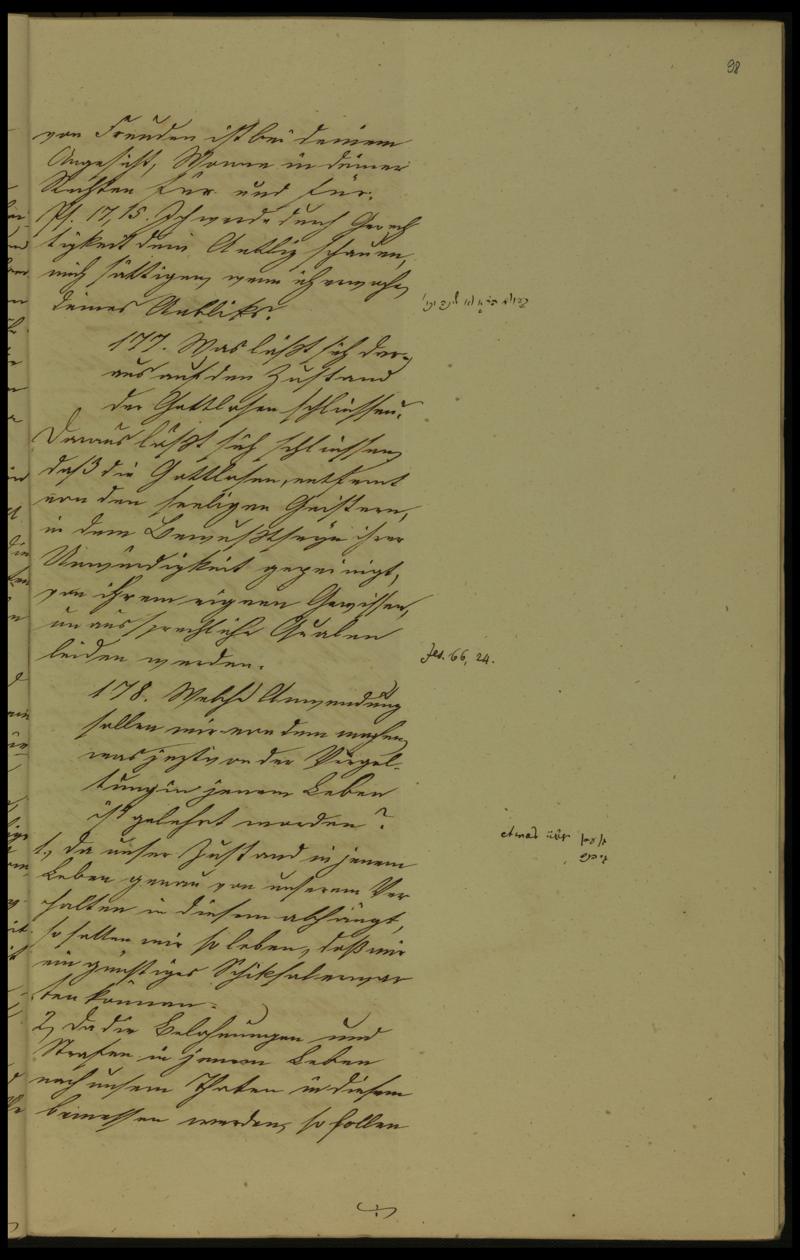 98
von Freuden ist bei deinem
Angesicht, Wonne in deiner
Rechten für und für.
Ps. 17, 15. Ich werde durch Gerech
tigkeit dein Antliz schauen,
mich sättigen, wenn ich erwache,
deines Anbliks.
177. Was läßt sich dar-
aus auf den Zustand
der Gottlosen schliessen.
Daraus läßt sich schliessen,
daß die Gottlosen, entfernt
von den seeligen Geistern,
in dem Bewußtseyn ihrer
Unwürdigkeit gepeinigt,
von ihrem eignen Gewissen,
unaussprechliche Qualen
leiden werden.
Jes. 66, 24.
178. Welche Anwendung
sollen wir von dem machen,
was jezt von der Vergel-
tung in jenem Leben
ist gelehrt worden?
1, Da unser Zustand in jenem
Leben genau von unserem Ver
halten in diesem abhängt,
so sollen wir so leben, daß wir
ein günstiges Schiksal erwar
ten können.
2, Da die Belohnungen und
Strafen in jenem Leben
nach unsern Thaten in diesem
bemessen werden, so sollen